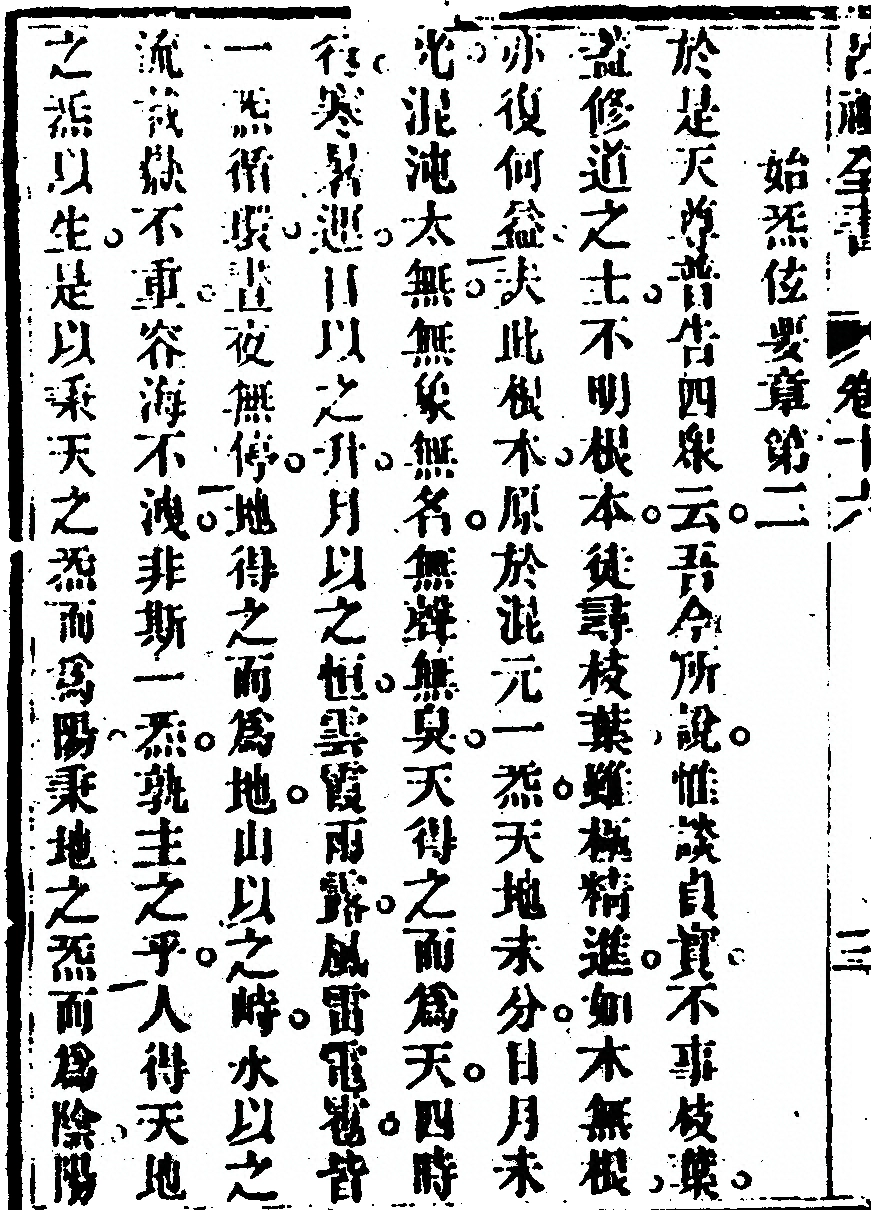 全書 卷十六 三
始炁伭要章第二
於是天尊普告四衆云吾今所說惟談眞實不事枝葉
蓋修道之士不明根本徒尋枝葉雖極精進如木無根
亦復何益夫此根本原於混元一炁天地未分日月未
光混沌太無無象無名無聲無臭天得之而爲天四時
行寒暑運日以之升月以之恒雲霞雨露風雷電雹皆
一炁循環晝夜無停地得之而爲地山以之峙水以之
流載嶽不重容海不洩非斯一炁孰主之乎人得天地
之炁以生是以秉天之炁而爲陽秉地之炁而爲陰陽